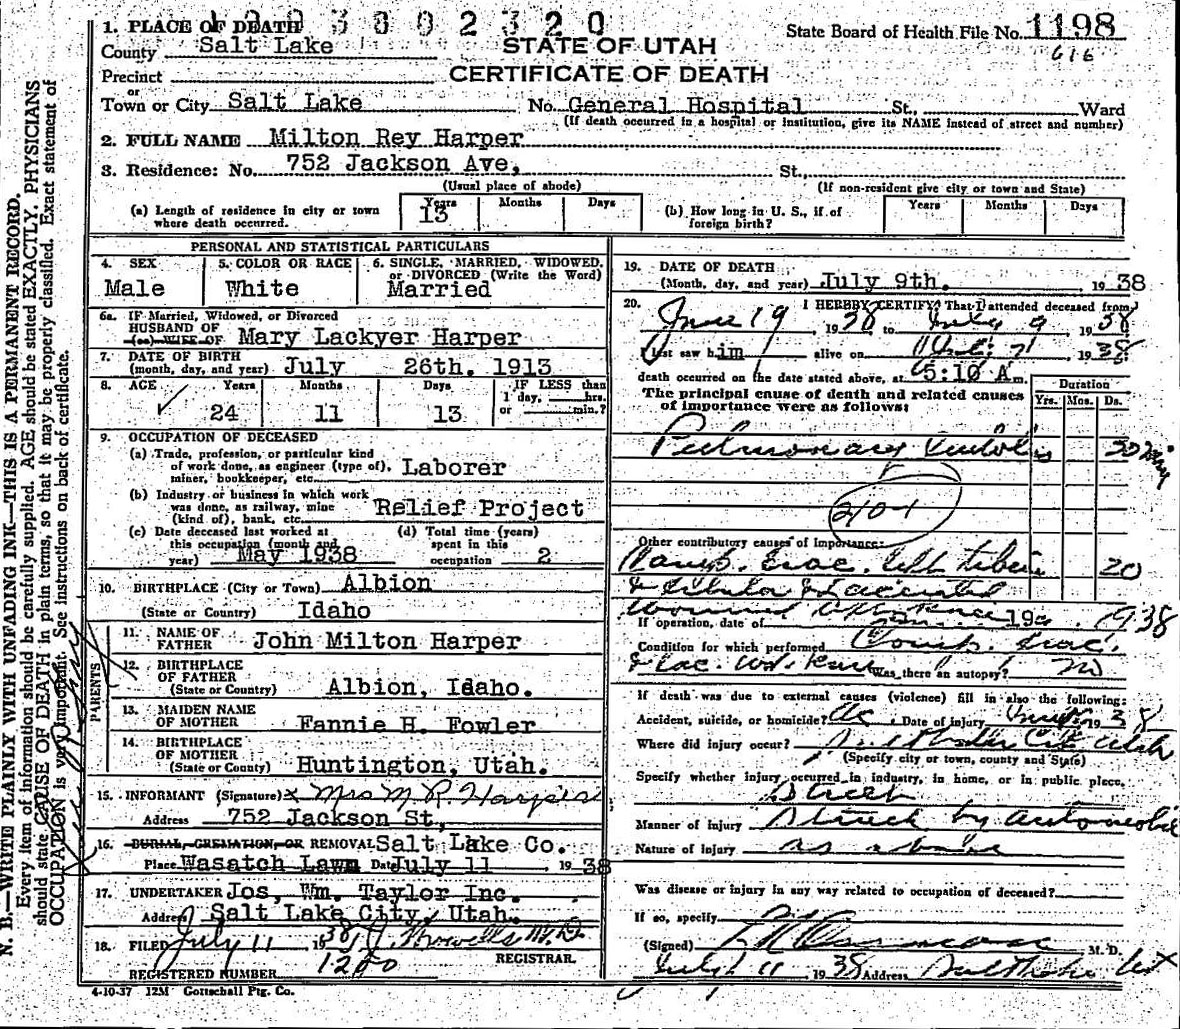 1. PLACE OF DEATH
State Board of Health File No. 1198
County Salt Lake
STATE OF UTAH
616
Precinct
CERTIFICATE OF DEATH
or
Town or City Salt Lake No. General Hospital St., Ward
(If death occurred in a hospital or institution, give its NAME instead of street and number)
2. FULL NAME Milton Rey Harper
3. Residence: No. 752 Jackson Ave, St.,
(Usual place of abode) (If non-resident give city or town and State)
(a) Length of residence in city or town where death occurred. Years 13 Months Days
(b) How long in U. S., if of foreign birth? Years Months Days
PERSONAL AND STATISTICAL PARTICULARS
4. SEX Male
5. COLOR OR RACE White
6. SINGLE, MARRIED, WIDOWED, or DIVORCED (Write the Word) Married
6a. IF Married, Widowed, or Divorced
HUSBAND OF
(or) WIFE OF Mary Lackyer Harper
7. DATE OF BIRTH
(month, day, and year) July 26th. 1913
8. AGE Years Months Days IF LESS than
1 day, hrs.
24 11 13 or min.?
9. OCCUPATION OF DECEASED
(a) Trade, profession, or particular kind
of work done, as engineer (type of), Laborer
miner, bookkeeper, etc.
(b) Industry or business in which work
was done, as railway, mine Relief Project
(kind of), bank, etc.
(c) Date deceased last worked at (d) Total time (years)
this occupation (month and spent in this
year) May 1938 occupation 2
10. BIRTHPLACE (City or Town) Albion
(State or Country) Idaho
PARENTS
11. NAME OF
FATHER John Milton Harper
12. BIRTHPLACE
OF FATHER
(State or Country) Albion, Idaho.
13. MAIDEN NAME
OF MOTHER Fannie H. Fowler
14. BIRTHPLACE
OF MOTHER
(State or County) Huntington, Utah.
15. INFORMANT (Signature) x Mrs M. R. Harper
Address 752 Jackson St,
16. BURIAL, CREMATION, OR REMOVAL Salt Lake Co.
Place Wasatch Lawn Date July 11 1938
17. UNDERTAKER Jos, Wm. Taylor Inc.
Address Salt Lake City, Utah.
18. FILED July 11 1938 M.D.
REGISTRAR.
REGISTERED NUMBER 1200
4-10-37 12M Gottschall Ptg. Co.
19. DATE OF DEATH
(Month, day, and year) July 9th. 1938
20. I HEREBY CERTIFY That I attended deceased from
June 19 1938 to July 9 1938
I last saw him alive on 1938
death occurred on the date stated above, at 5:10 A m.
The principal cause of death and related causes
of importance were as follows:
Duration
Yrs. Mos. Ds.
Pulmonary Embolus
210-1
Other contributory causes of importance:
Comp. Frac. left tibia 20
& fibula & Lacerated
wound
If operation, date of 19 1938
Condition for which performed Comp. Frac.
& Lac. Wd. Knee Was there an autopsy? no
If death was due to external causes (violence) fill in also the following:
Accident, suicide, or homicide? Ac. Date of injury 1938
Where did injury occur? Salt Lake City Utah
(Specify city or town, county and State)
Specify whether injury occurred in industry, in home, or in public place.
Street
Manner of injury Struck by automobile
Nature of injury as above
Was disease or injury in any way related to occupation of deceased?
If so, specify
(Signed) M. D.
July 11 1938 Address Salt Lake
N. B.—WRITE PLAINLY WITH UNFADING INK—THIS IS A PERMANENT RECORD.
Every item of information should be carefully supplied. AGE should be stated EXACTLY. PHYSICIANS
should state CAUSE OF DEATH in plain terms, so that it may be properly classified. Exact statement of
OCCUPATION is very important. See instructions on back of certificate.